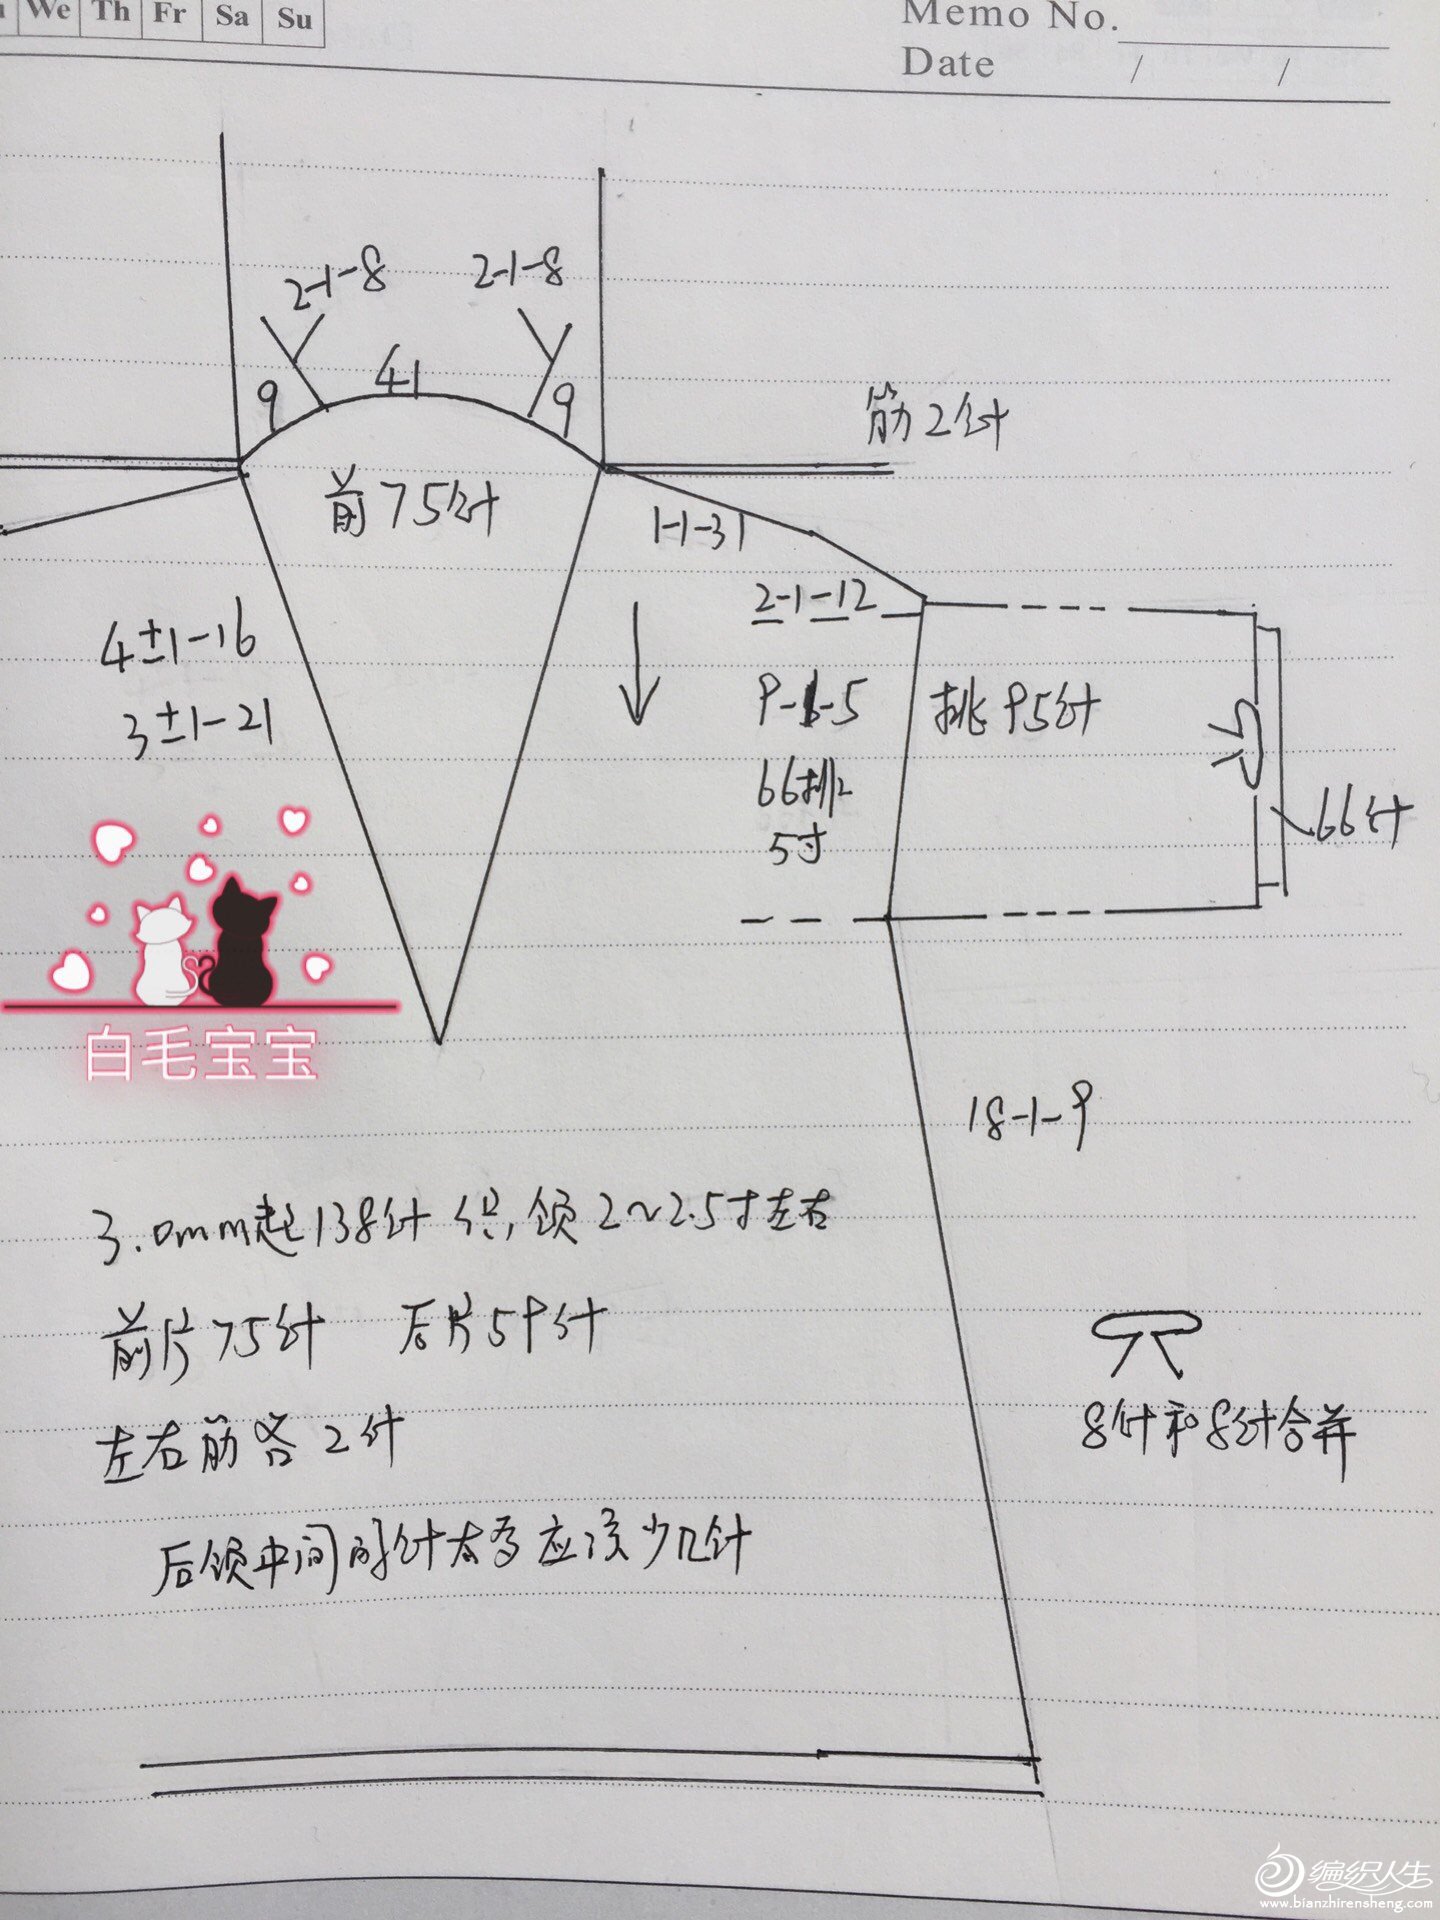 We Th Fr Sa Su
Memo No.
Date / /
2-1-8
2-1-8
9
41
9
筋2针
前75针
1-1-31
2-1-12
4±1-16
3±1-21
挑95针
66排
5寸
66针
白毛宝宝
18-1-9
3.0mm起138针 织,领2~2.5寸左右
前片75针 后片59针
左右筋各2针
8针和8针合并
后领中间的针太多应该少几针
编织人生
www.bianzhirensheng.com